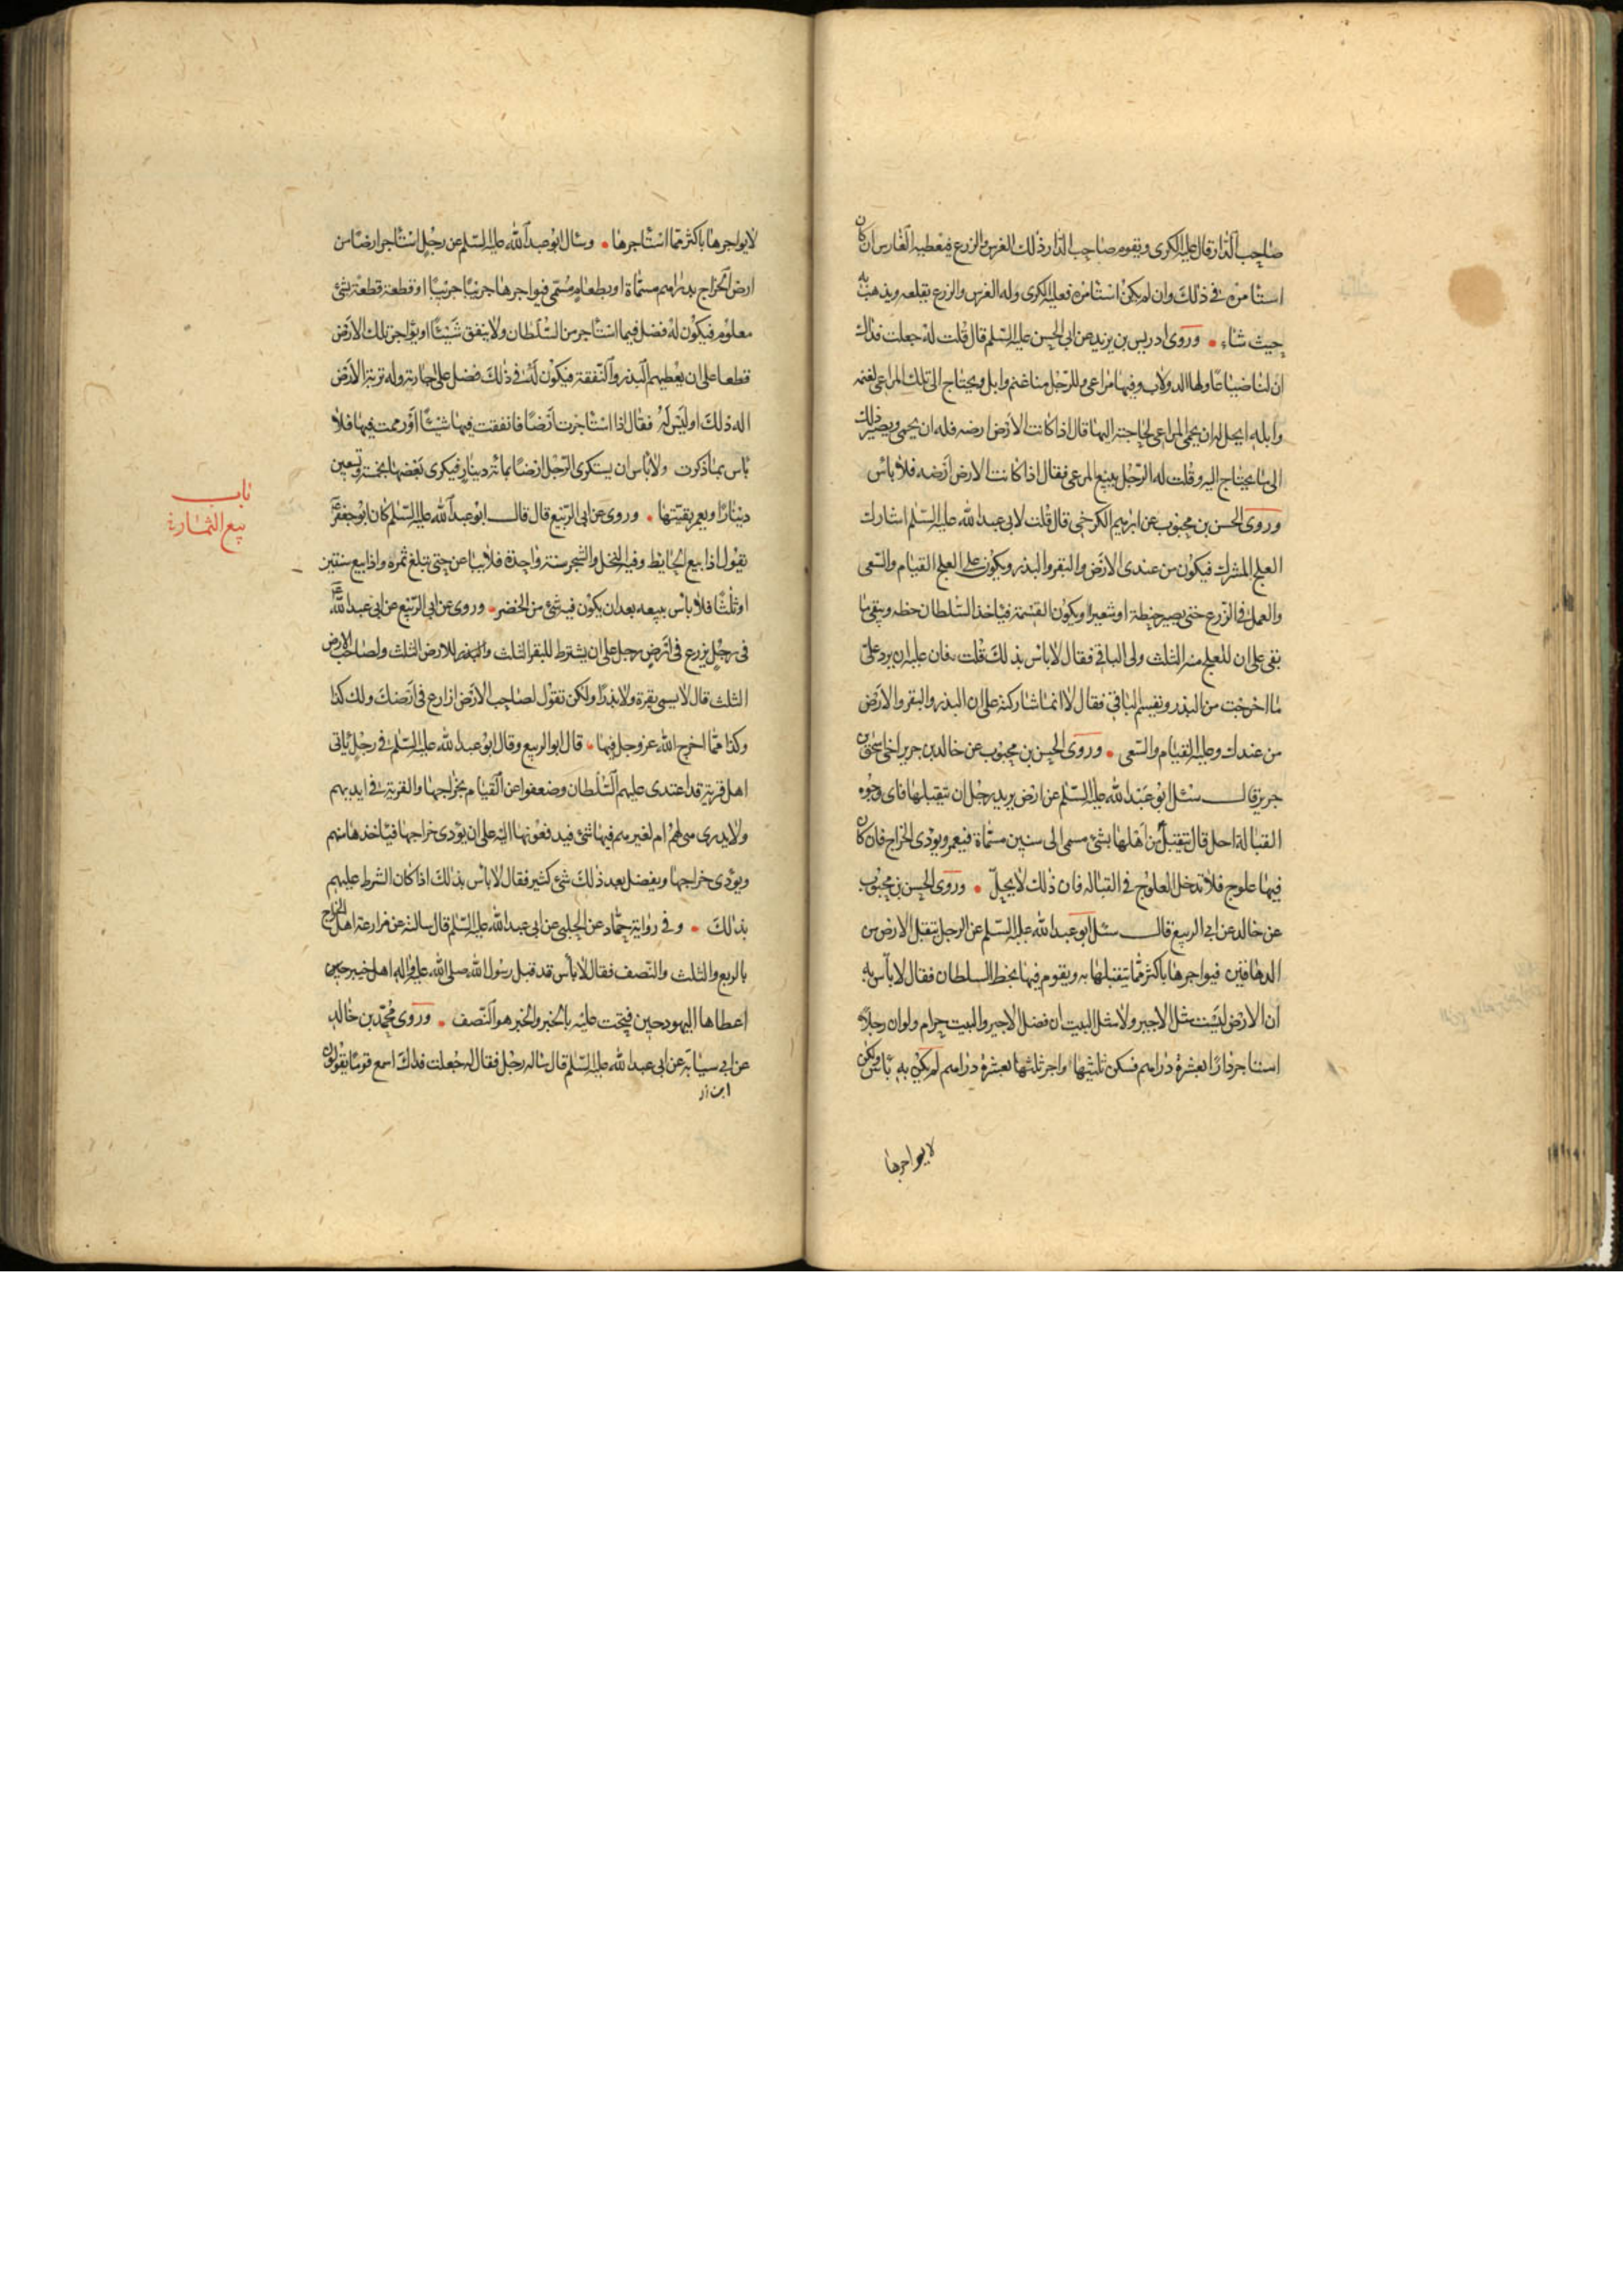 صاحب الدار قال عليه الكرى ويقوم صاحب الدار وذلك الغرس والزرع فيعطيه الغارس ان كان
استأمره في ذلك وان لم يكن استأمره فعليه الكرى وله الغرس والزرع يقلعه ويذهب به
حيث شاء • وروى ادريس بن يزيد عن ابي الحسن عليه السلم قال قلت له جعلت فداك
ان لنا ضياعا ولها الدولاب وفيها مراعي وللرجل منا غنم وابل ويحتاج الى تلك المراعي لغنمه
وابله ايحل له ان يحمى المراعي لحاجته اليها قال اذا كانت الارض ارضه فله ان يحمى ويصير ذلك
الى ما يحتاج اليه وقلت له الرجل يبيع المرعى فقال اذا كانت الارض ارضه فلا بأس
وروى الحسن بن محبوب عن ابرهيم الكرخي قال قلت لابي عبد الله عليه السلم اشارك
العلج المشرك فيكون من عندى الارض والبقر والبذر ويكون على العلج القيام والسعى
والعمل في الزرع حتى يصير حنطة او شعيرا ويكون القسمة فيأخذ السلطان حظه ويبقى ما
بقى على ان للعلج منه الثلث ولى الباقي فقال لا باس بذلك قلت فان عليه ان يرد على
ما اخرجت من البذر ونقسم الباقي فقال لا انما شاركته على ان البذر والبقر والارض
من عندك وعليه القيام والسعى • وروى الحسن بن محبوب عن خالد بن جرير اخي اسحق بن
جرير قال سئل ابو عبد الله عليه السلم عن ارض يريد رجل ان يتقبلها فاى وجوه
القبالة احل قال يتقبل من اهلها بشئ مسمى الى سنين مسماة فيعمر ويؤدى الخراج فان كان
فيها علوج فلا تدخل العلوج في القباله فان ذلك لا يحل • وروى الحسن بن محبوب
عن خالد عن ابي الربيع قال سئل ابو عبد الله عليه السلم عن الرجل يتقبل الارض من
الدهاقين فيواجرها باكثر مما يتقبلها به ويقوم فيها بحظ السلطان فقال لا بأس به
ان الارض ليست مثل الاجير ولا مثل البيت ان فضل الاجير والبيت حرام ولو ان رجلا
استاجر دارا بعشرة دراهم فسكن ثلثيها واجر ثلثها بعشرة دراهم لم يكن به باس ولكن
لا يواجرها
لا يواجرها باكثر مما استأجرها • وسال ابو عبد الله عليه السلم عن رجل استأجر ارضا من
ارض الخراج بدراهم مسماة او بطعام مسمى فيواجرها جريبا جريبا او قطعة قطعة بشئ
معلوم فيكون له فضل فيما استأجر من السلطان ولا ينفق شيئا او يؤاجر تلك الارض
قطعا على ان يعطيهم البذر والنفقة فيكون له في ذلك فضل على اجارته وله تربة الارض
اله ذلك او ليس له فقال اذا استأجرت ارضا فانفقت فيها شيئا او رممت فيها فلا
بأس بما ذكرت ولا بأس ان يستكرى الرجل ارضا بمائة دينار فيكرى بعضها بخمسة وتسعين
دينارا ويعمر بقيتها • وروى عن ابي الربيع قال قال ابو عبد الله عليه السلم كان ابو جعفر
باب
بيع الثمار
يقول اذا بيع الحايط وفيه النخل والشجر سنة واحدة فلا يباعن حتى تبلغ ثمره واذا بيع سنتين
او ثلثا فلا بأس ببيعه بعد ان يكون فيه شئ من الخضر • وروى عن ابي الربيع عن ابي عبد الله
في رجل يزرع في ارض رجل على ان يشترط للبقر الثلث وللبذر الثلث ولصاحب الارض
الثلث قال لا يسمى بقرة ولا بذرا ولكن تقول لصاحب الارض ازارع في ارضك ولك كذا
وكذا مما اخرج الله عز وجل فيها • قال ابو الربيع وقال ابو عبد الله عليه السلم في رجل يأتى
اهل قرية قد اعتدى عليهم السلطان وضعفوا عن القيام بخراجها والقرية في ايديهم
ولا يدرى هى لهم ام لغيرهم فيها شئ فيدفعونها اليه على ان يؤدى خراجها فيأخذها منهم
ويؤدى خراجها ويفضل بعد ذلك شئ كثير فقال لا بأس بذلك اذا كان الشرط عليهم
بذلك • وفي رواية حماد عن الحلبي عن ابي عبد الله عليه السلم قال سالته عن مزارعة اهل الخراج
بالربع والثلث والنصف فقال لا بأس قد قبل رسول الله صلى الله عليه واله اهل خيبر حين
اعطاها اليهود حين فتحت عليه بالخبر والخبر هو النصف • وروى محمد بن خالد
عن ابي سيابة عن ابي عبد الله عليه السلم قال ساله رجل فقال له جعلت فداك اسمع قوما يقولون